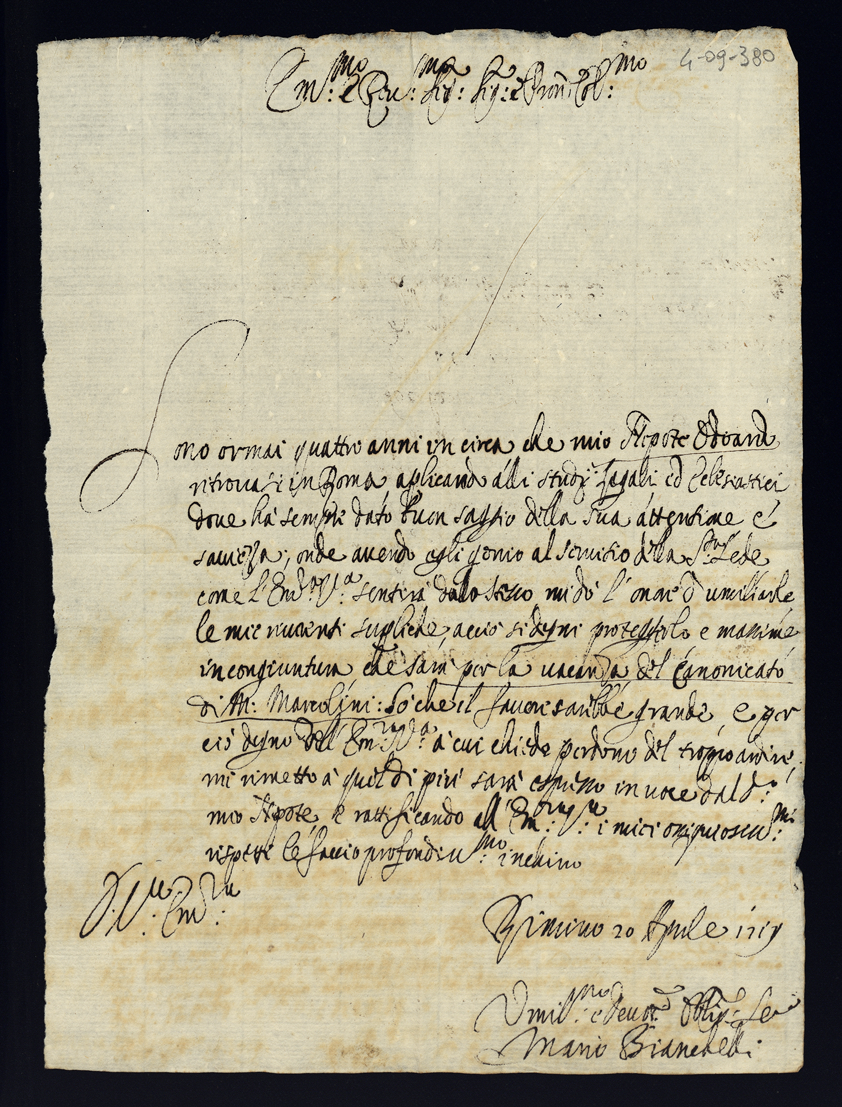 4-09-380
Em:mo e Rev:mo Sig: Sig: e Pron: Col:mo
Sono ormai quattro anni in circa che mio Nepote Odoardo
ritrovasi in Roma aplicando alli studj Legali ed Eclesiastici
dove hà sempre dato buon saggio della sua attentione é
saviezza; onde avendo egli genio al servitio della S:ta Sede
come l'Em:a V:a sentirà dalo stesso mi dò l'onore d'umiliarle
le mie riverenti supliche, acciò si degni protegerlo e massime
in congiuntura che sarà per la vacanza del Canonicato
di M: Marcolini: Sò che il favore sarebbe grande, e per
ciò degno dell'Em:za V:a à cui chiedo perdono del troppo ardire,
mi rimetto à quel di più sarà espresso in voce dal d:o
mio Nepote è rattificando all'Em:za V:a i miei ossequiosiss:mi
rispetti le faccio profondiss:mo inchino
D: V:ra Em:za
Rimino 20 Aprile
Umil:mo e Devot: Oblig: Se:
Mario Bianchelli